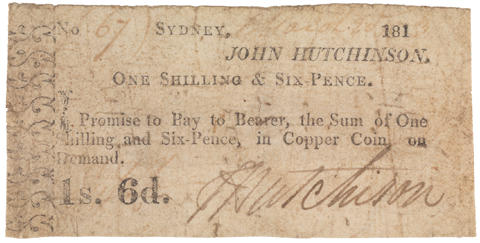 No 67 SYDNEY, 181
JOHN HUTCHINSON.
ONE SHILLING & SIX-PENCE.
Promise to Pay to Bearer, the Sum of One
Shilling and Six-Pence, in Copper Coin on
Demand.
1s. 6d. J Hutchison